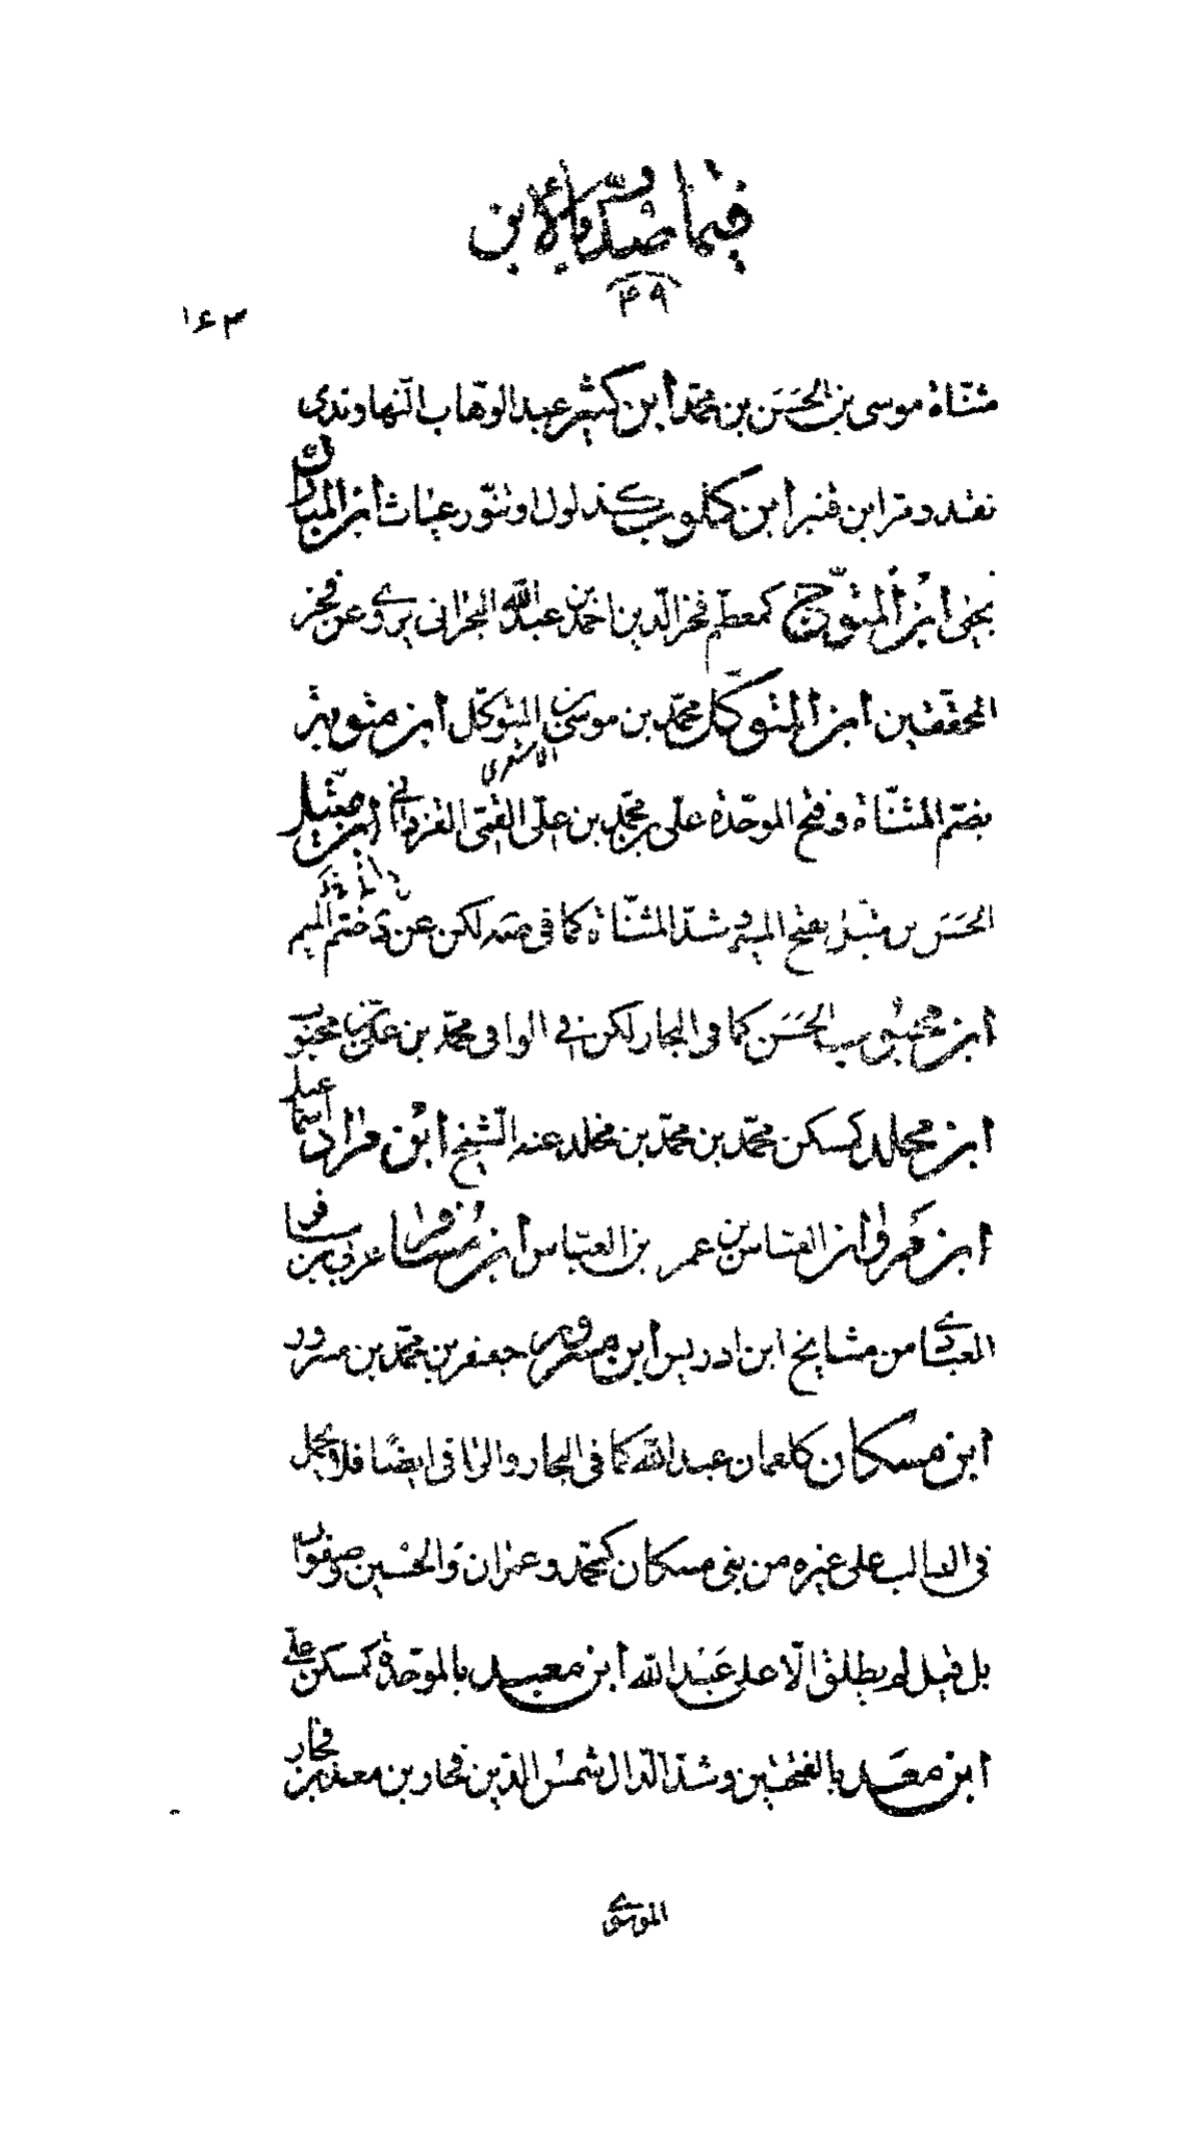 فيما صدّر بأبو وابن
٤٩
١٦٣
مثنّاة موسى بن الحَسَن بن محمّد ابن كثير عبد الوهّاب النّهاوندى
ابن قنبر ابن كلوب كذلول او تنّور غياث ابن المبارك
يحيى ابن المتوّج كمعظّم فخر الدّين احمد بن عبد الله البحرانى يروى عن فخر
المحقّقين ابن المتوكّل محمّد بن موسى بن المتوكّل ابن متويه
بضمّ المثنّاة وفتح الموحّدة علىّ بن محمّد بن علىّ القمّى القزدانى الاشعرى ابن متّيل
الحَسَن بن متّيل بفتح الميم وشدّ المثنّاة كما فى صه لكن عن د ضمّ الميم
ابن محبوب الحَسَن كما فى البحار لكن فى الوافى محمّد بن علىّ بن محبوب
ابن مخلد كمسكن محمّد بن محمّد بن مخلد عنه الشّيخ ابن مرار اسماعيل
ابن مروان العبّاس بن عمر بن العبّاس ابن مسافر عربى بن مسافر
العبادى من مشايخ ابن ادريس ابن مسرور جعفر بن محمّد بن مسرور
ابن مسكان كلعمان عبد الله كما فى البحار والوافى ايضًا فلا يحمل
فى الغالب على غيره من بنى مسكان كمحمّد وعمران والحسين وصفوان
بل قيل لم يطلق الّا على عَبْد الله ابن معبد بالموحّدة كمسكن علىّ
ابن معَد بالفتحتين وشدّ الدّال شمس الدّين فخار بن معد بن فخار
الموسوى